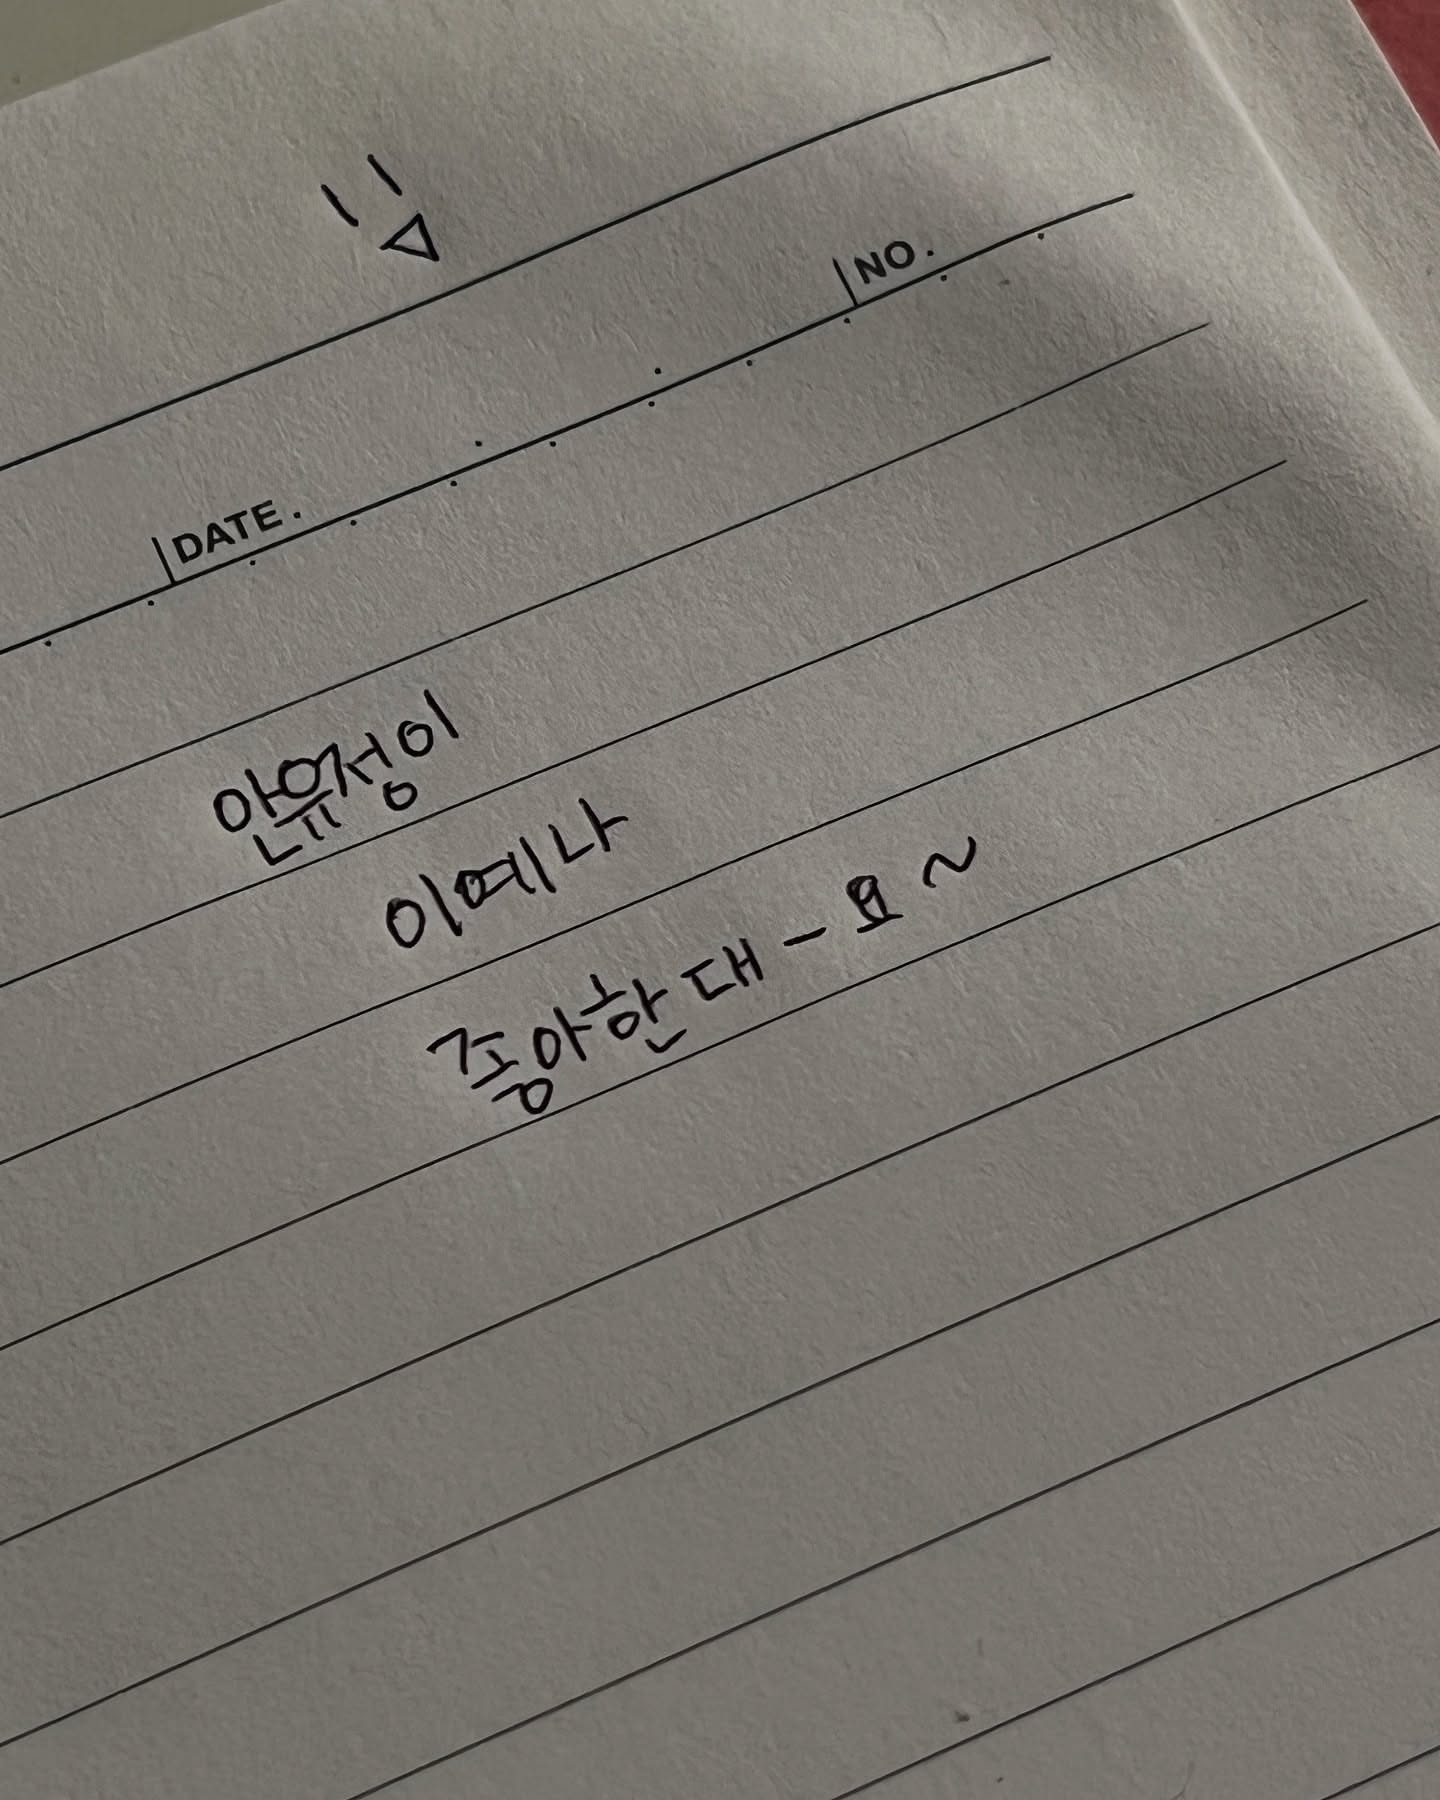 NO.
DATE.
안유정이
이예나
좋아한대-요~